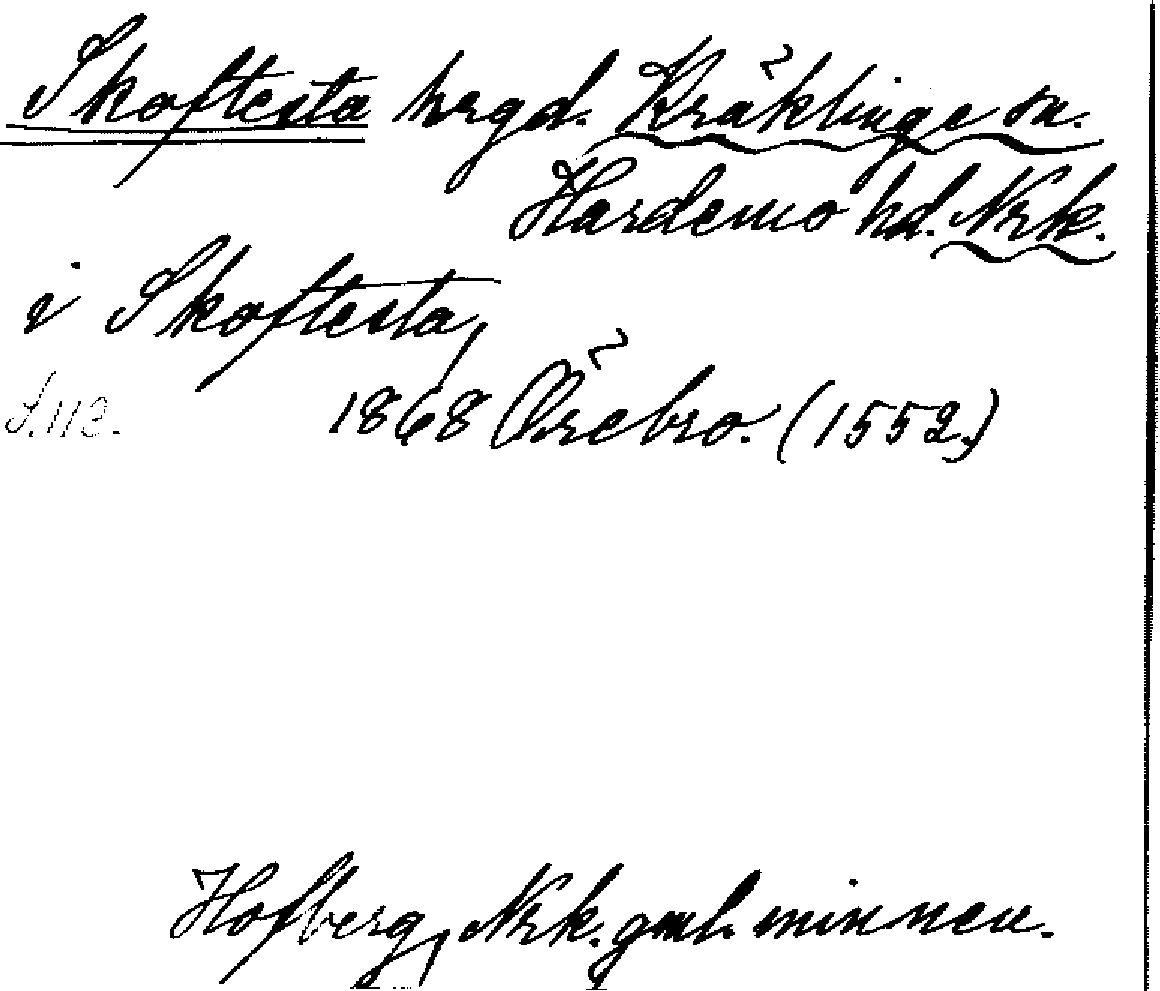 Skoftesta hrgd. Kräklinge sn.
Hardemo hd. Nrk.
i Skoftesta,
S. 113. 1868 Örebro. (1552.)
Hofberg, Nrk. gml. minnen.